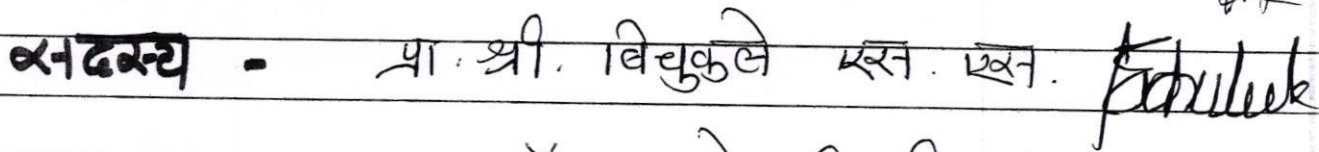 सदस्य - प्रा. श्री. बिचुकुले एस. एस.